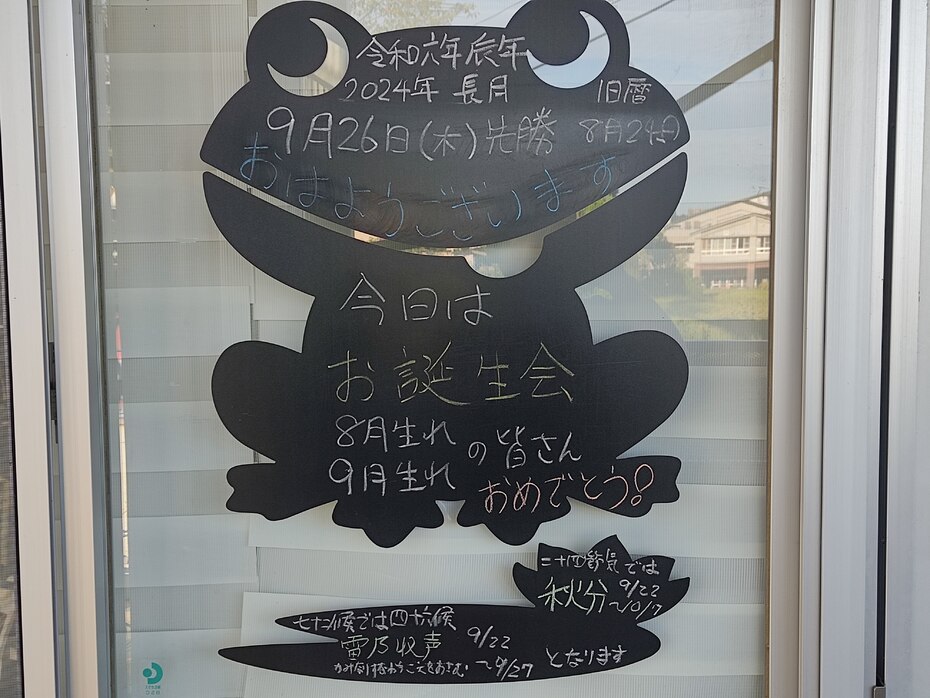 令和六年辰年
2024年 長月 旧暦
9月26日(木)先勝 8月24日
おはようございます
今日は
お誕生会
8月生れ
9月生れ の皆さん
おめでとう!
二十四節気では
秋分 9/22
~10/7
七十二候では四十六候
雷乃収声 9/22
~9/27 となります